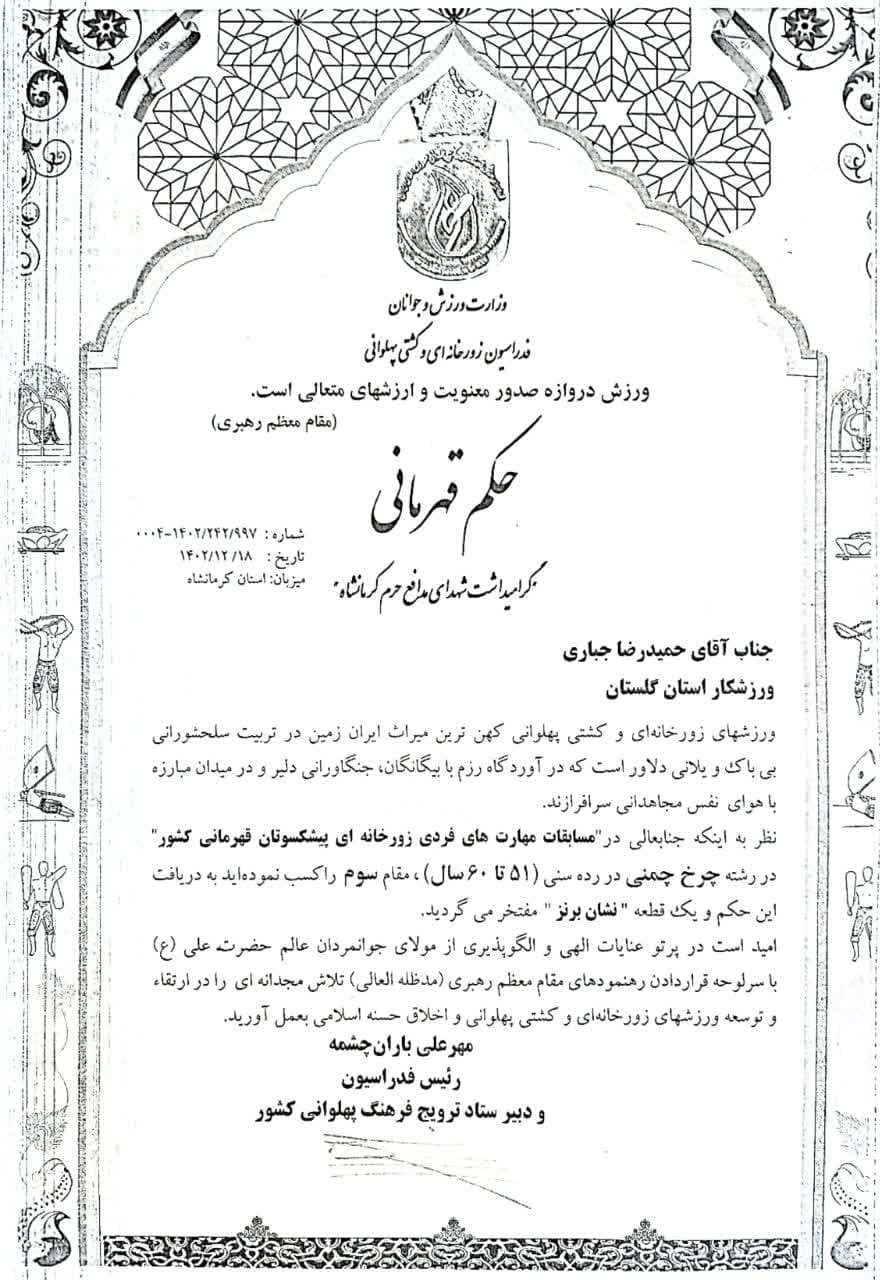 وزارت ورزش و جوانان
فدراسیون زورخانه ای و کشتی پهلوانی
ورزش دروازه صدور معنویت و ارزشهای متعالی است.
(مقام معظم رهبری)
حکم قهرمانی
شماره : ۰۰۰۴-۱۴۰۲/۲۴۲/۹۹۷
تاریخ : ۱۴۰۲/۱۲/۱۸
میزبان: استان کرمانشاه
"گرامیداشت شهدای مدافع حرم کرمانشاه"
جناب آقای حمیدرضا جباری
ورزشکار استان گلستان
ورزشهای زورخانه‌ای و کشتی پهلوانی کهن ترین میراث ایران زمین در تربیت سلحشورانی
بی باک و یلانی دلاور است که در آوردگاه رزم با بیگانگان، جنگاورانی دلیر و در میدان مبارزه
با هوای نفس مجاهدانی سرافرازند.
نظر به اینکه جنابعالی در"مسابقات مهارت های فردی زورخانه ای پیشکسوتان قهرمانی کشور"
در رشته چرخ چمنی در رده سنی (۵۱ تا ۶۰ سال) ، مقام سوم راکسب نموده‌اید به دریافت
این حکم و یک قطعه "نشان برنز " مفتخر می گردید.
امید است در پرتو عنایات الهی و الگوپذیری از مولای جوانمردان عالم حضرت علی (ع)
با سرلوحه قراردادن رهنمودهای مقام معظم رهبری (مدظله العالی) تلاش مجدانه ای را در ارتقاء
و توسعه ورزشهای زورخانه‌ای و کشتی پهلوانی و اخلاق حسنه اسلامی بعمل آورید.
مهرعلی باران‌چشمه
رئیس فدراسیون
و دبیر ستاد ترویج فرهنگ پهلوانی کشور